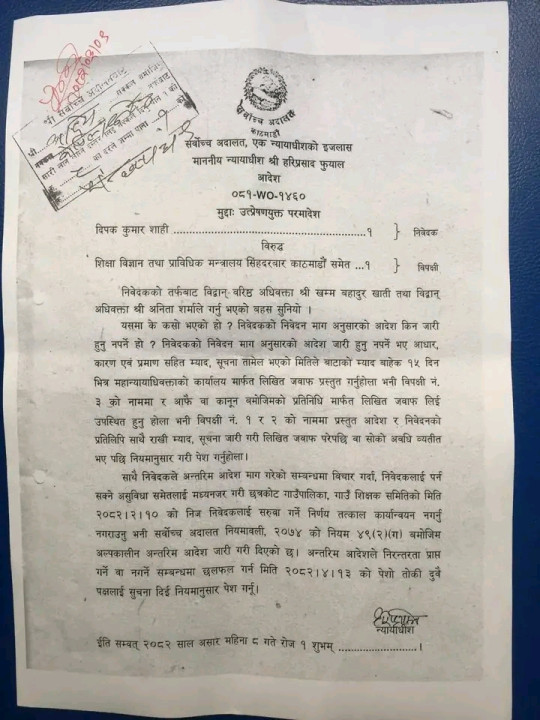 श्री सर्वोच्च अदालतबाट
सर्वोच्च अदालत
काठमाडौं
सर्वोच्च अदालत, एक न्यायाधीशको इजलास
माननीय न्यायाधीश श्री हरिप्रसाद फुयाल
आदेश
०८१-WO-१४६०
मुद्दाः उत्प्रेषणयुक्त परमादेश
दिपक कुमार शाही ........................................१ } निवेदक
विरुद्ध
शिक्षा विज्ञान तथा प्राविधिक मन्त्रालय सिंहदरवार काठमाडौं समेत ...१ } विपक्षी
निवेदकको तर्फबाट विद्वान् वरिष्ठ अधिवक्ता श्री खम्म बहादुर खाती तथा विद्वान्
अधिवक्ता श्री अनिता शर्माले गर्नु भएको बहस सुनियो ।
यसमा के कसो भएको हो ? निवेदकको निवेदन माग अनुसारको आदेश किन जारी
हुनु नपर्ने हो ? निवेदकको निवेदन माग अनुसारको आदेश जारी हुनु नपर्ने भए आधार,
कारण एवं प्रमाण सहित म्याद, सूचना तामेल भएको मितिले बाटाको म्याद बाहेक १५ दिन
भित्र महान्यायाधिवक्ताको कार्यालय मार्फत लिखित जवाफ प्रस्तुत गर्नुहोला भनी विपक्षी नं.
३ को नाममा र आफै वा कानून बमोजिमको प्रतिनिधि मार्फत लिखित जवाफ लिई
उपस्थित हुनु होला भनी विपक्षी नं. १ र २ को नाममा प्रस्तुत आदेश र निवेदनको
प्रतिलिपि साथै राखी म्याद, सूचना जारी गरी लिखित जवाफ परेपछि वा सोको अवधि व्यतीत
भए पछि नियमानुसार गरी पेश गर्नुहोला।
साथै निवेदकले अन्तरिम आदेश माग गरेको सम्बन्धमा विचार गर्दा, निवेदकलाई पर्न
सक्ने असुविधा समेतलाई मध्यनजर गरी छत्रकोट गाउँपालिका, गाउँ शिक्षक समितिको मिति
२०८२।२।१० को निज निवेदकलाई सरुवा गर्ने निर्णय तत्काल कार्यान्वयन नगर्नु
नगराउनु भनी सर्वोच्च अदालत नियमावली, २०७४ को नियम ४९(२)(ग) बमोजिम
अल्पकालीन अन्तरिम आदेश जारी गरी दिएको छ। अन्तरिम आदेशले निरन्तरता प्राप्त
गर्ने वा नगर्ने सम्बन्धमा छलफल गर्न मिति २०८२।४।१३ को पेशी तोकी दुवै
पक्षलाई सूचना दिई नियमानुसार पेश गर्नू।
न्यायाधीश
ईति सम्बत् २०८२ साल असार महिना ८ गते रोज १ शुभम् .....................।